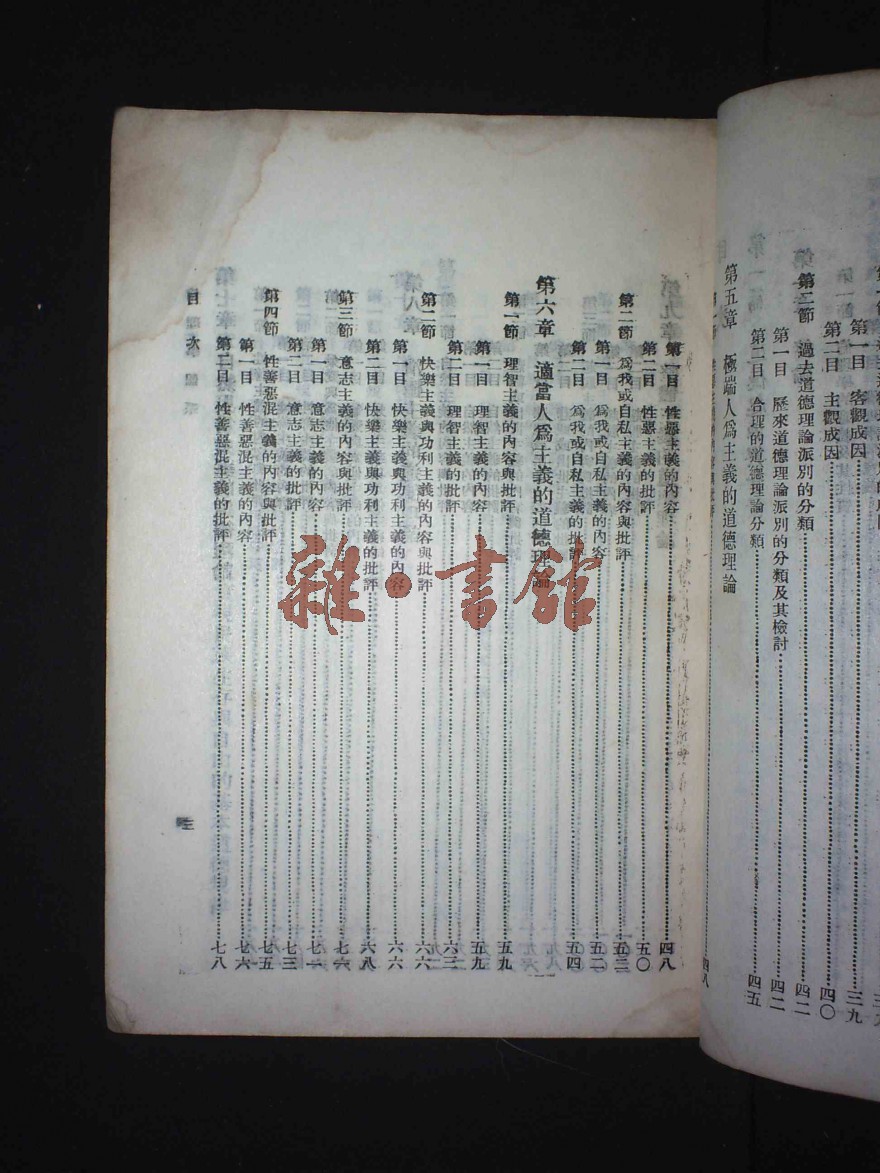 第一目 客觀成因 三九
第二目 主觀成因 四〇
第二節 過去道德理論派別的分類 四二
第一目 歷來道德理論派別的分類及其檢討 四二
第二目 合理的道德理論分類 四五
第五章 極端人爲主義的道德理論
四八
第一目 性惡主義的內容 四八
第二目 性惡主義的批評 五〇
第二節 爲我或自私主義的內容與批評 五二
第一目 爲我或自私主義的內容 五二
第二目 爲我或自私主義的批評 五四
第六章 適當人爲主義的道德理論
第一節 理智主義的內容與批評 五九
第一目 理智主義的內容 五九
第二目 理智主義的批評 六三
第二節 快樂主義與功利主義的內容與批評 六六
第一目 快樂主義與功利主義的內容 六六
第二目 快樂主義與功利主義的批評 六八
第三節 意志主義的內容與批評
第一目 意志主義的內容
第二目 意志主義的批評 七三
第四節 性善惡混主義的內容與批評 七五
第一目 性善惡混主義的內容 七六
第二目 性善惡混主義的批評 七八
目次
雜·書館